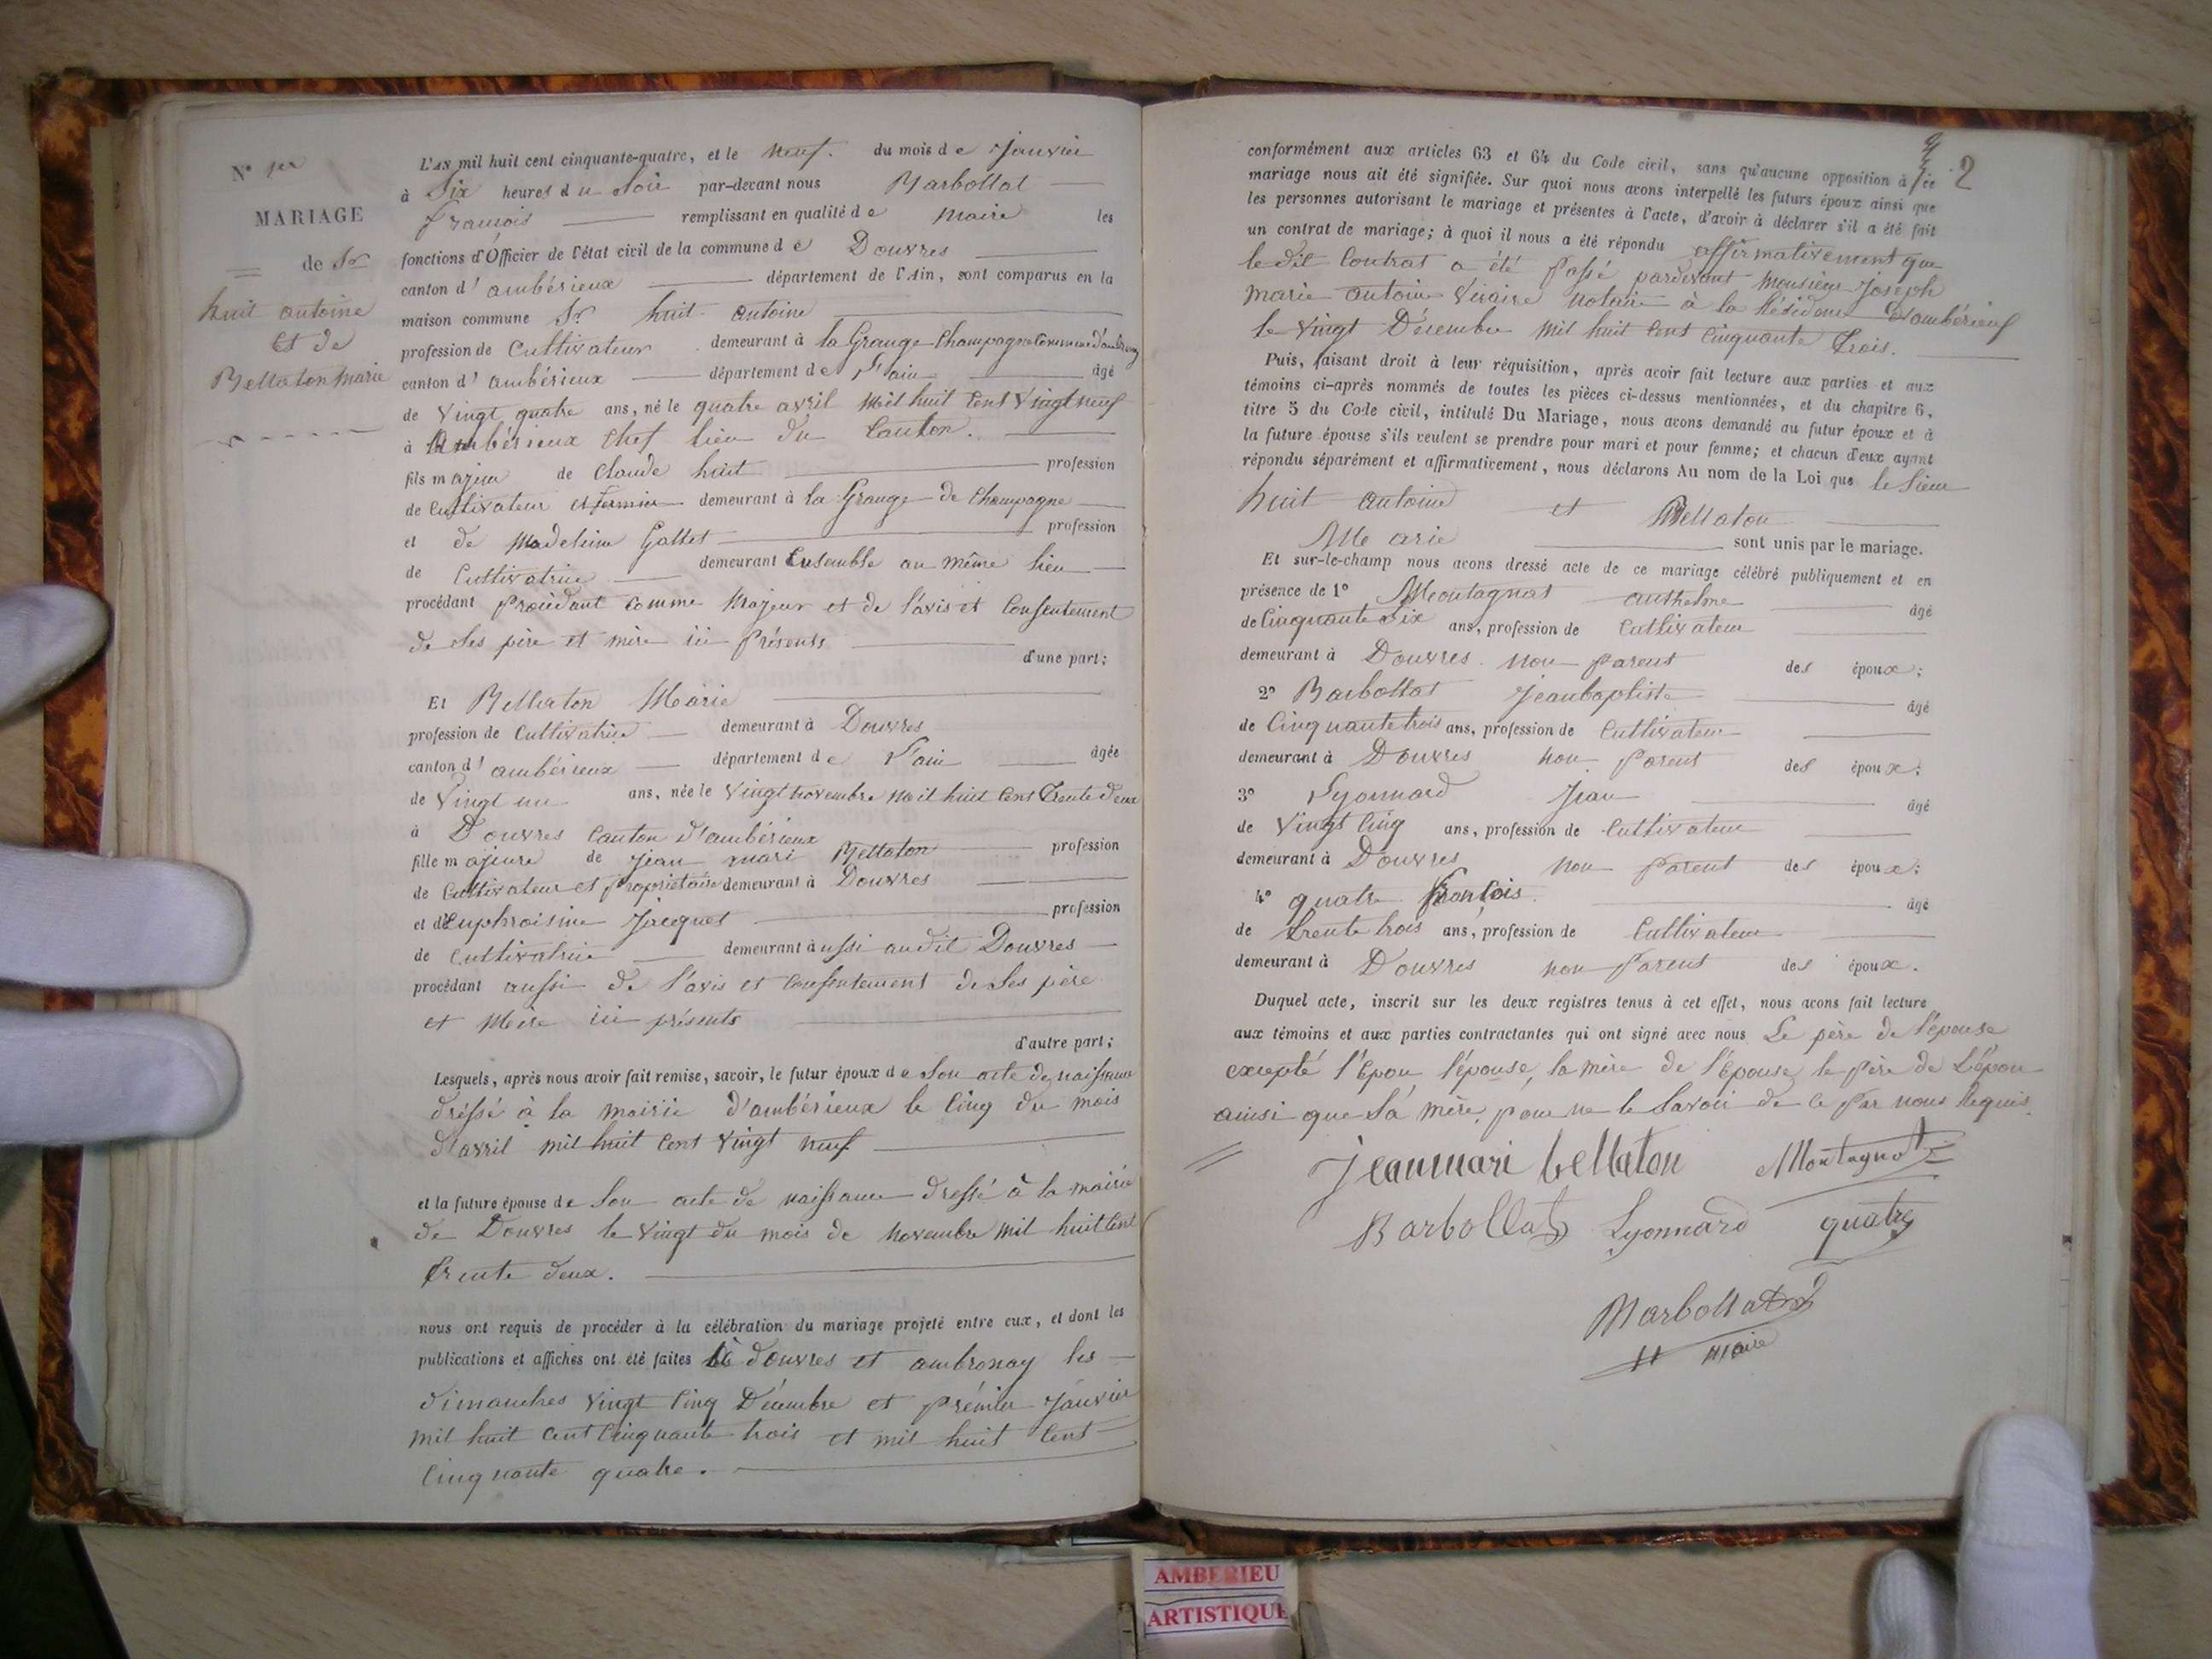 N° 1er
MARIAGE
de Sr
huit antoine
et de
Bellaton Marie
L'AN mil huit cent cinquante-quatre, et le neuf. du mois de Janvier
à Six heures du Soir par-devant nous Barbollat
françois remplissant en qualité de Maire les
fonctions d'Officier de l'état civil de la commune de Douvres
canton d'ambérieux département de l'Ain, sont comparus en la
maison commune Sr huit antoine
profession de Cultivateur demeurant à la Grange Champagne Commune d'ambronay
canton d'ambérieux département de l'ain âgé
de Vingt quatre ans, né le quatre avril Mil huit Cent Vingt neuf
à Ambérieux Chef lieu du Canton.
fils majeur de Claude huit profession
de Cultivateur et fermier demeurant à la Grange de Champagne
et de Madeleine Gallet profession
de Cultivatrice demeurant Ensemble au même lieu
procédant Procédant Comme Majeur et de l'avis et Consentement
de Ses père et mère ici Présents
d'une part;
Et Bellaton Marie
profession de Cultivatrice demeurant à Douvres
canton d'ambérieux département de l'ain âgée
de Vingt un ans, née le Vingt novembre Mil huit Cent Trente deux
à Douvres Canton d'ambérieux
fille majeure de Jean mari Bellaton profession
de Cultivateur et Propriétaire demeurant à Douvres
et d'Euphroisine Jacquet profession
de Cultivatrice demeurant aussi audit Douvres
procédant aussi de l'avis et Consentement de Ses père
et Mère ici présents
d'autre part;
Lesquels, après nous avoir fait remise, savoir, le futur époux de Son acte de naissance
dréssé à la mairie d'ambérieux le Cinq du mois
d'avril mil huit Cent Vingt neuf
et la future épouse de Son acte de naissance dressé à la mairie
de Douvres le Vingt du mois de novembre mil huit Cent
trente deux.
nous ont requis de procéder à la célébration du mariage projeté entre eux, et dont les
publications et affiches ont été faites à douvres et ambronay les
dimanches Vingt Cinq Décembre et Prémier Janvier
mil huit Cent Cinquante trois et mil huit Cent
Cinquante quatre.
2
conformément aux articles 63 et 64 du Code civil, sans qu'aucune opposition à ce
mariage nous ait été signifiée. Sur quoi nous avons interpellé les futurs époux ainsi que
les personnes autorisant le mariage et présentes à l'acte, d'avoir à déclarer s'il a été fait
un contrat de mariage; à quoi il nous a été répondu affirmativement que
le dit Contrat a été Passé pardevant Monsieur Joseph
Marie antoine notaire à la Résidence d'ambérieux
le Vingt Décembre Mil huit Cent Cinquante Trois.
Puis, faisant droit à leur réquisition, après avoir fait lecture aux parties et aux
témoins ci-après nommés de toutes les pièces ci-dessus mentionnées, et du chapitre 6,
titre 5 du Code civil, intitulé Du Mariage, nous avons demandé au futur époux et à
la future épouse s'ils veulent se prendre pour mari et pour femme; et chacun d'eux ayant
répondu séparément et affirmativement, nous déclarons Au nom de la Loi que le Sieur
huit antoine et Bellaton
Marie sont unis par le mariage.
Et sur-le-champ nous avons dressé acte de ce mariage célébré publiquement et en
présence de 1° Montagnat anthelme âgé
de Cinquante Six ans, profession de Cultivateur
demeurant à Douvres. non Parent des époux;
2° Barbollat Jeanbaptiste âgé
de Cinquante trois ans, profession de Cultivateur
demeurant à Douvres non Parent des époux;
3° Lyonnard Jean âgé
de Vingt Cinq ans, profession de Cultivateur
demeurant à Douvres non Parent des époux;
4° quatre françois. âgé
de trente trois ans, profession de Cultivateur
demeurant à Douvres non Parent des époux.
Duquel acte, inscrit sur les deux registres tenus à cet effet, nous avons fait lecture
aux témoins et aux parties contractantes qui ont signé avec nous Le père de l'épouse
excepté l'époux l'épouse, la mère de l'épouse le Père de L'époux
ainsi que Sa mère, pour ne le Savoir de ce Par nous Requis.
Jeanmari bellaton Montagnat
Barbollat Lyonnard quatre
Barbollat
Maire
AMBERIEU
ARTISTIQUE